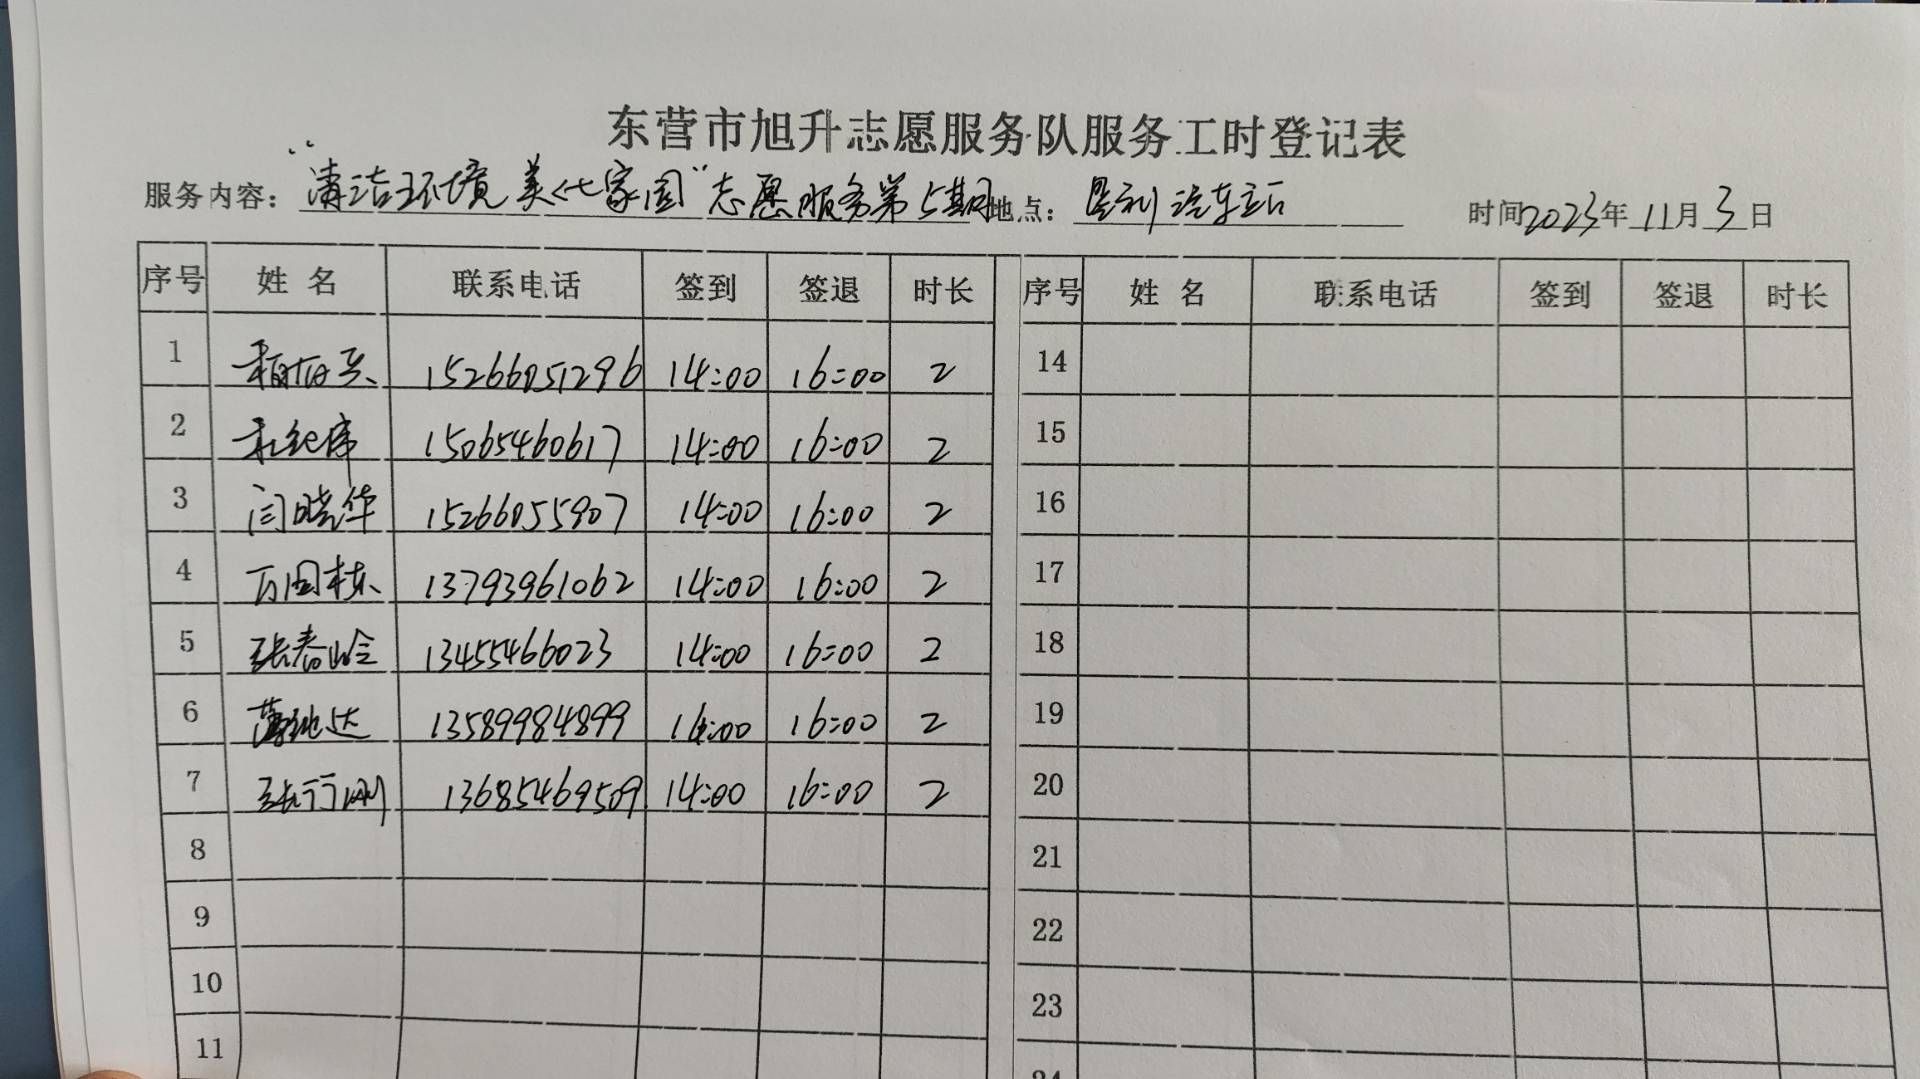 东营市旭升志愿服务队服务工时登记表
服务内容：“清洁环境 美化家园”志愿服务第5期 地点：垦利汽车站 时间2023年11月3日
序号 姓名 联系电话 签到 签退 时长 序号 姓名 联系电话 签到 签退 时长
1 15266051296 14:00 16:00 2 14
2 15065460617 14:00 16:00 2 15
3 闫晓华 15266055907 14:00 16:00 2 16
4 万国栋 13793961062 14:00 16:00 2 17
5 张春岭 13455466023 14:00 16:00 2 18
6 13589984899 14:00 16:00 2 19
7 张行刚 13685469509 14:00 16:00 2 20
8 21
9 22
10 23
11 24